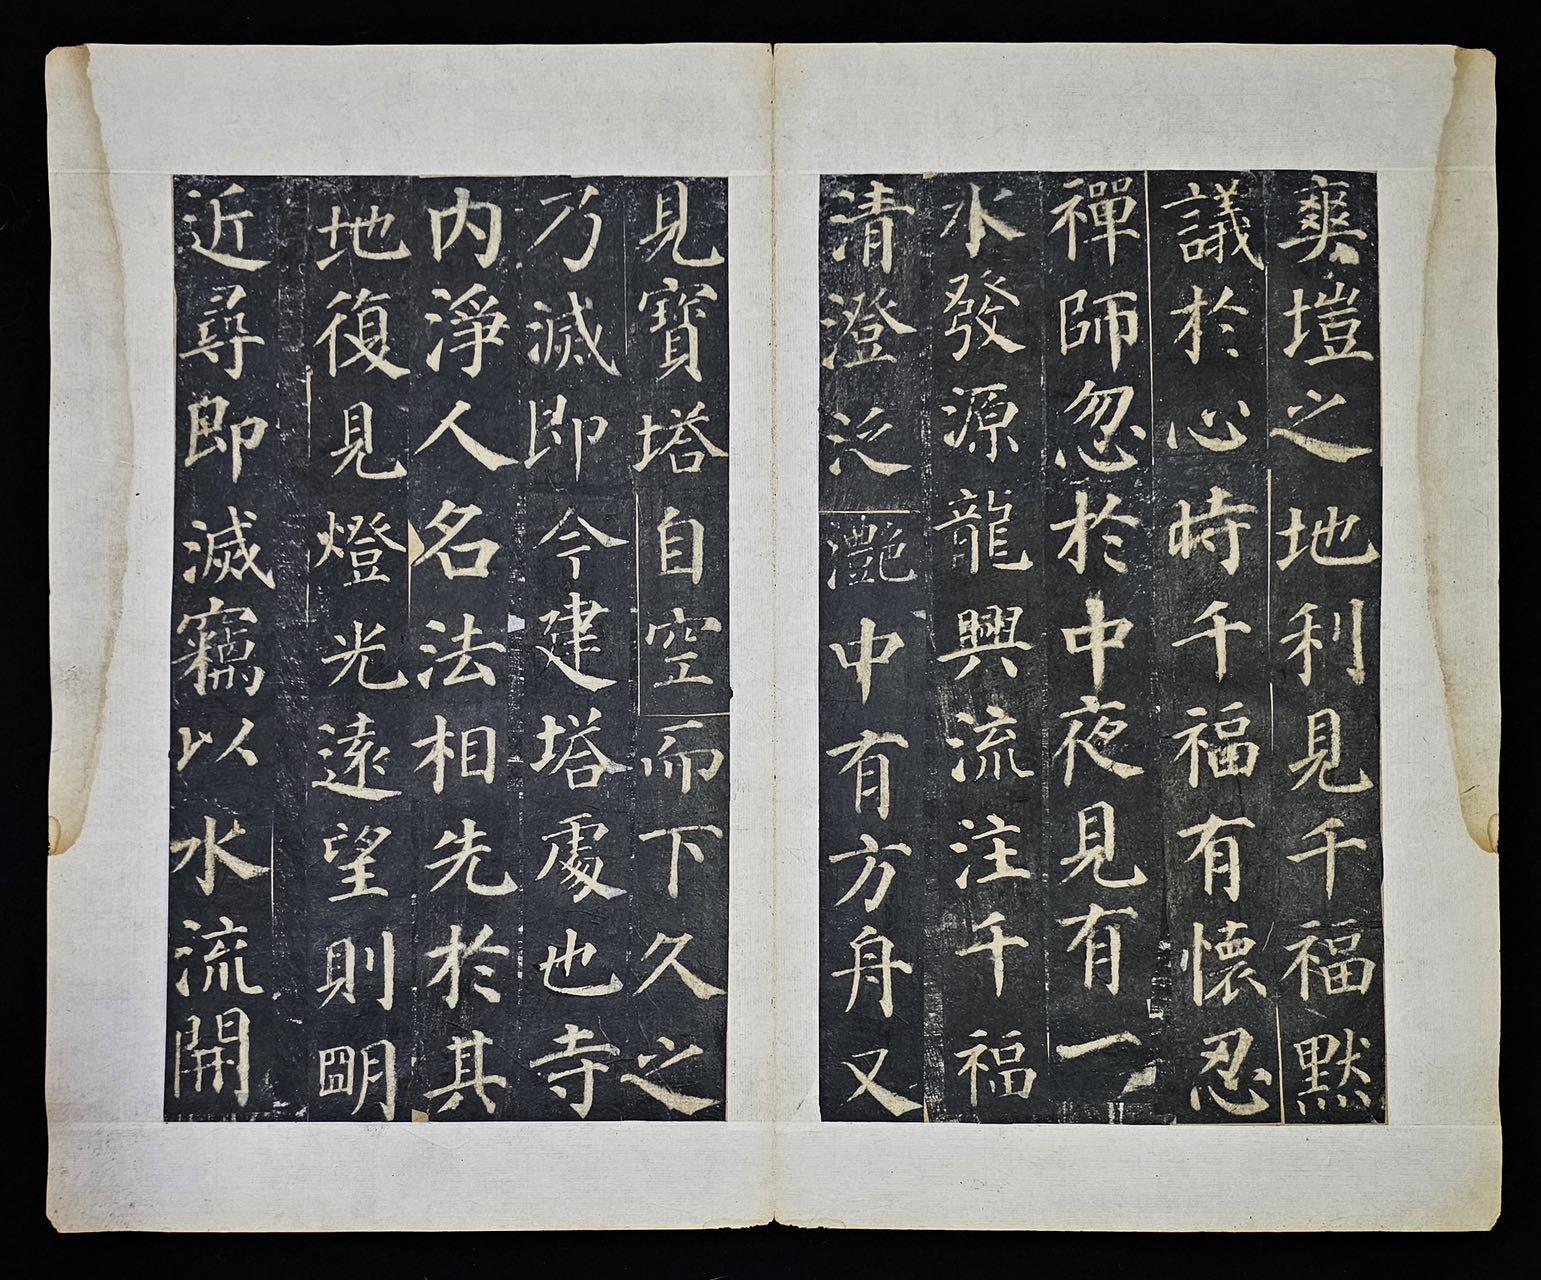 爽塏之地利見千福默
議於心時千福有懷忍
禪師忽於中夜見有一
水發源龍興流注千福
清澄泛灧中有方舟又
見寶塔自空而下久之
乃滅即今建塔處也寺
内淨人名法相先於其
地復見燈光遠望則明
近尋即滅竊以水流開